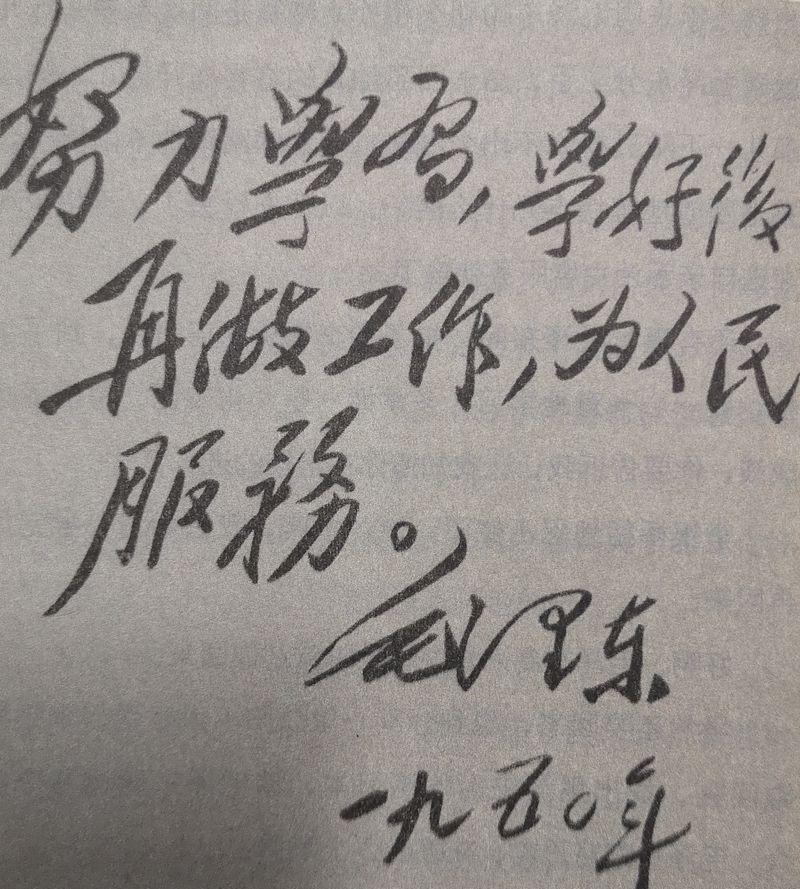 努力學習，學好後
再做工作，为人民
服務。
毛泽东
一九五〇年